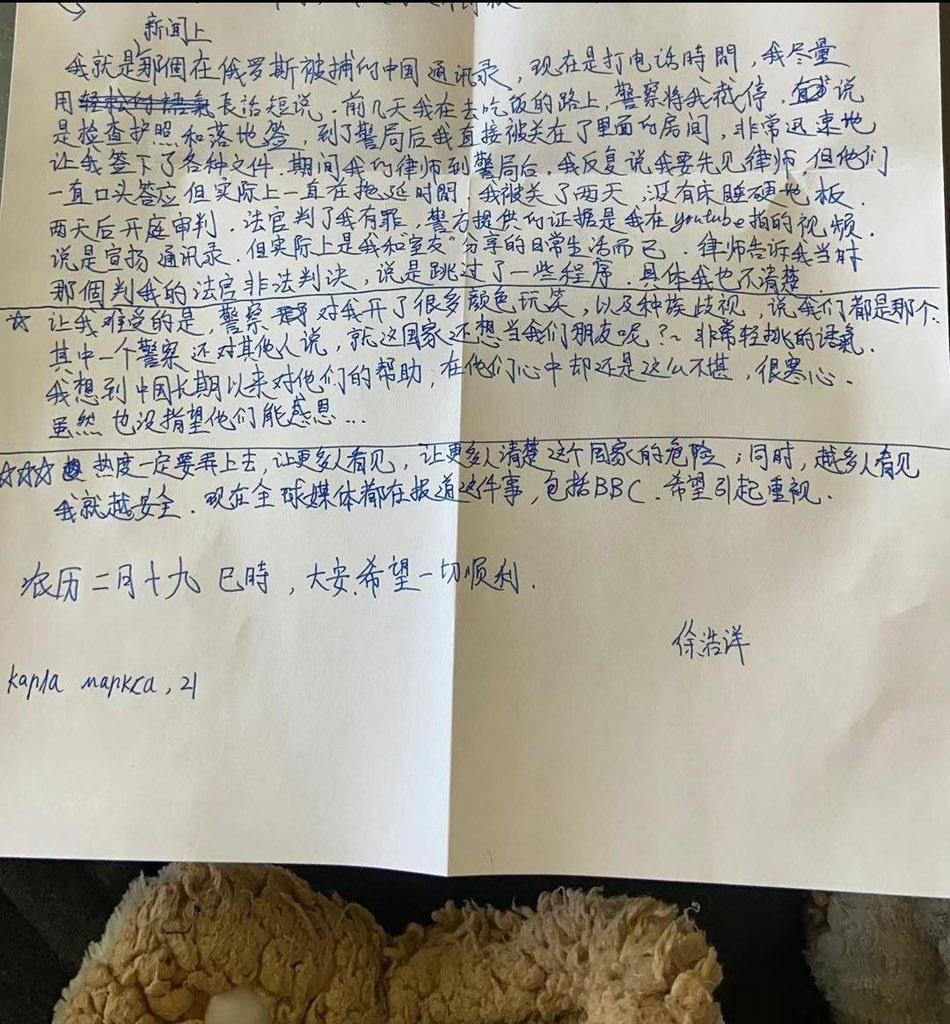 新闻上
我就是那個在俄罗斯被捕的中国通讯录,现在是打电话時間,我尽量
用長話短说. 前几天我在去吃饭的路上,警察将我截停,说
是检查护照和落地签,到了警局后我直接被关在了里面的房间,非常迅速地
让我签下了各种文件.期间我的律师到警局后,我反复说我要先见律师,但他们
一直口头答应但实际上一直在拖延时間.我被关了两天,没有床睡硬地板.
两天后开庭审判.法官判了我有罪,警方提供的证据是我在youtube拍的视频.
说是宣扬通讯录.但实际上是我和室友"分享的日常生活而已.律师告诉我当时
那個判我的法官非法判决,说是跳过了一些程序.具体我也不清楚.
☆ 让我难受的是,警察对我开了很多颜色玩笑,以及种族歧视,说我们都是那个.
其中一个警察还对其他人说,就这国家还想当我们朋友呢?~ 非常轻挑的语氣.
我想到中国长期以来对他们的帮助,在他们心中却还是这么不堪,很寒心.
虽然也没指望他们能感恩...
☆☆☆ 热度一定要弄上去,让更多人看见,让更多人清楚这个国家的危险;同时,越多人看见
我就越安全.现在全球媒体都在报道这件事,包括BBC.希望引起重视.
农历二月十九 巳時,大安.希望一切顺利.
徐浩洋
карла маркса, 21